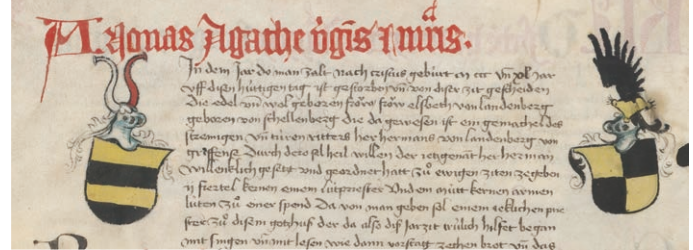 A Nonas Agathe v̾gis ⁊ mr̄is.
In dem Jar do man zalt nach cristus gebürt m ccc vn̄ xl Jar
vff disen hüttigen tag ist gestorben vn̄ von diser zit gescheiden
Die edel vn̄ wol geboren frow frow elsbeth von landenberg
geboren von schellenberg die da gewesen ist ein gemachel des
strengen vn̄ türen ritters her hermans von landenberg von
griffense Durch dero sel heil willen der ietzgenāt her herman
willenklich gesetzt vnd geordnet hatt zů ewigen ziten ze geben
ij fiertel kernen einem lütpriester Vnd em mütt kernen armen
lüten zů einer spend Da von man geben sol einem
zů disem gotzhus der da also diß Jarzit hilfet began
mit singen vn̄ mit lesen wie dann vn̄ das